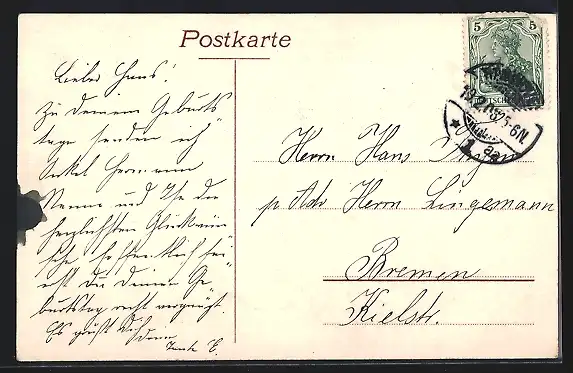 Postkarte
Lieber Hans!
Zu Deinem Geburts
tage senden ich
Onkel Hermann
Minna und Ihr die
herzlichsten Glückwün
sche hoffentlich
Du Deinen Ge
burtstag recht vergnügt.
Es grüßt Dich
Deine
Tante E.
5 5
5-6N.
Herrn Hans
p Adr Herrn Lingemann
Bremen
Kielstr.